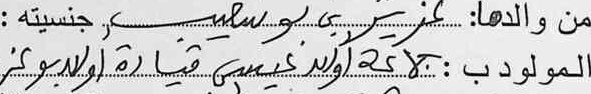 من والدها: عزيز بن بوسلهيب جنسيته :
المولود ب : جماعة أولاد عيسى قيادة أولاد بوعز